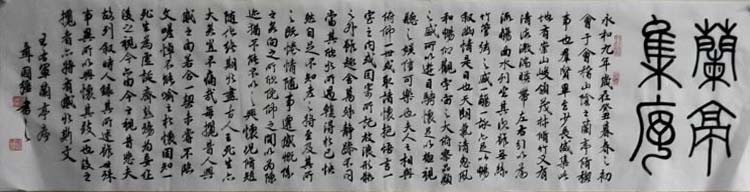 蘭亭
集序
永和九年歲在癸丑暮春之初
會于會稽山陰之蘭亭脩禊
事也群賢畢至少長咸集此
地有崇山峻領茂林脩竹又有
清流激湍映帶左右引以為
流觴曲水列坐其次雖無絲
竹管絃之盛一觴一詠亦足以暢
敘幽情是日也天朗氣清惠風
和暢仰觀宇宙之大俯察品類
之盛所以遊目騁懷足以極視
聽之娛信可樂也夫人之相與
俯仰一世或取諸懷抱悟言一
室之內或因寄所託放浪形骸
之外雖趣舍萬殊靜躁不同
當其欣於所遇暫得於己快
然自足不知老之將至及其所
之既惓情隨事遷感慨係
之矣向之所欣俛仰之間以為陳
迹猶不能不以之興懷況脩短
隨化終期於盡古人云死生亦
大矣豈不痛哉每攬昔人興
感之由若合一契未嘗不臨
文嗟悼不能喻之於懷固知一
死生為虛誕齊彭殤為妄作
後之視今亦由今之視昔悲夫
故列敘時人錄其所述雖世殊
事異所以興懷其致一也後之
攬者亦將有感於斯文
王右軍蘭亭序